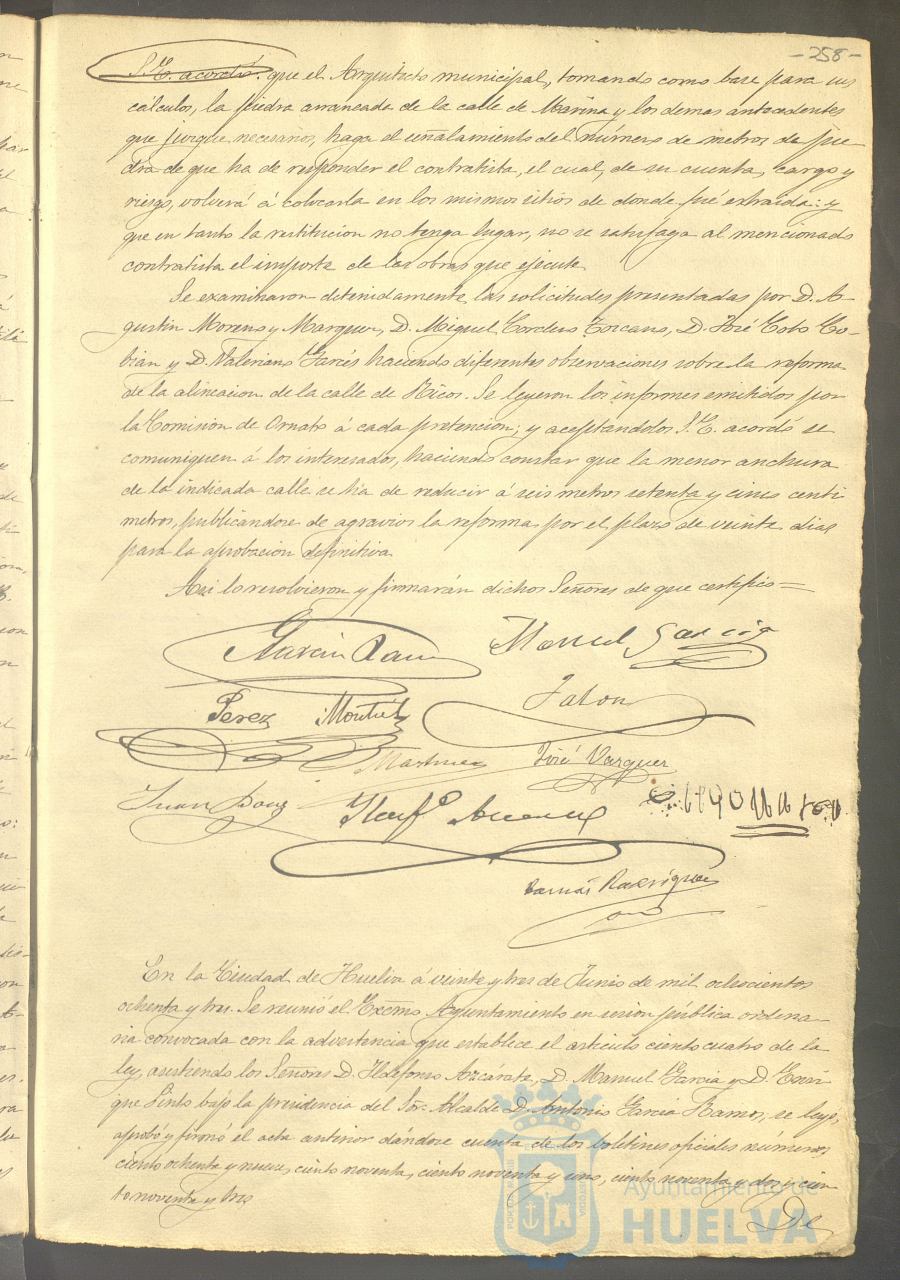 -258-
S. E. acordó: que el Arquitecto municipal, tomando como base para sus
cálculos, la piedra arrancada de la calle de Marina y los demas antecedentes
que juzgue necesarios, haga el señalamiento del número de metros de pie
dra de que ha de responder el contratista, el cual, de su cuenta, cargo y
riesgo, volverá á colocarla en los mismos sitios de donde fué extraida: y
que en tanto la restitucion no tenga lugar, no se satisfaga al mencionado
contratista el importe de las obras que ejecute.
Se examinaron detenidamente las solicitudes presentadas por D. A-
gustin Moreno y Marquez, D. Miguel Cordero Toscano, D. José Coto Co-
bian y D. Valeriano Garcés haciendo diferentes observaciones sobre la reforma
de la alineacion de la calle de Ricos. Se leyeron los informes emitidos por
la Comision de Ornato á cada pretencion; y aceptandolos S. E. acordó se
comuniquen á los interesados, haciendo constar que la menor anchura
de la indicada calle se ha de reducir á seis metros setenta y cinco centi
metros, publicandose de agravios la reforma por el plazo de veinte dias
para la aprobacion definitiva.
Asi lo resolvieron y firmarán dichos Señores de que certifico=
Garcia Ramos Manuel Garcia
Perez Montiel Jalon
Martinez José Vazquez
Juan
Tomás Rodriguez
En la Ciudad de Huelva á veinte y tres de Junio de mil ochocientos
ochenta y tres. Se reunió el Excmo Ayuntamiento en sesion pública ordena
ria convocada con la advertencia que establece el articulo ciento cuatro de la
ley, asistiendo los Señores D. Ildefonso Azcárate, D. Manuel Garcia y D. Enri
que Pinto bajo la presidencia del Sor. Alcalde D. Antonio Garcia Ramos, se leyó,
aprobó y firmó el acta anterior dándose cuenta de los boletines oficiales números
ciento ochenta y nueve, ciento noventa, ciento noventa y uno, ciento noventa y dos y cien
to noventa y tres.
De
Ayuntamiento de
HUELVA